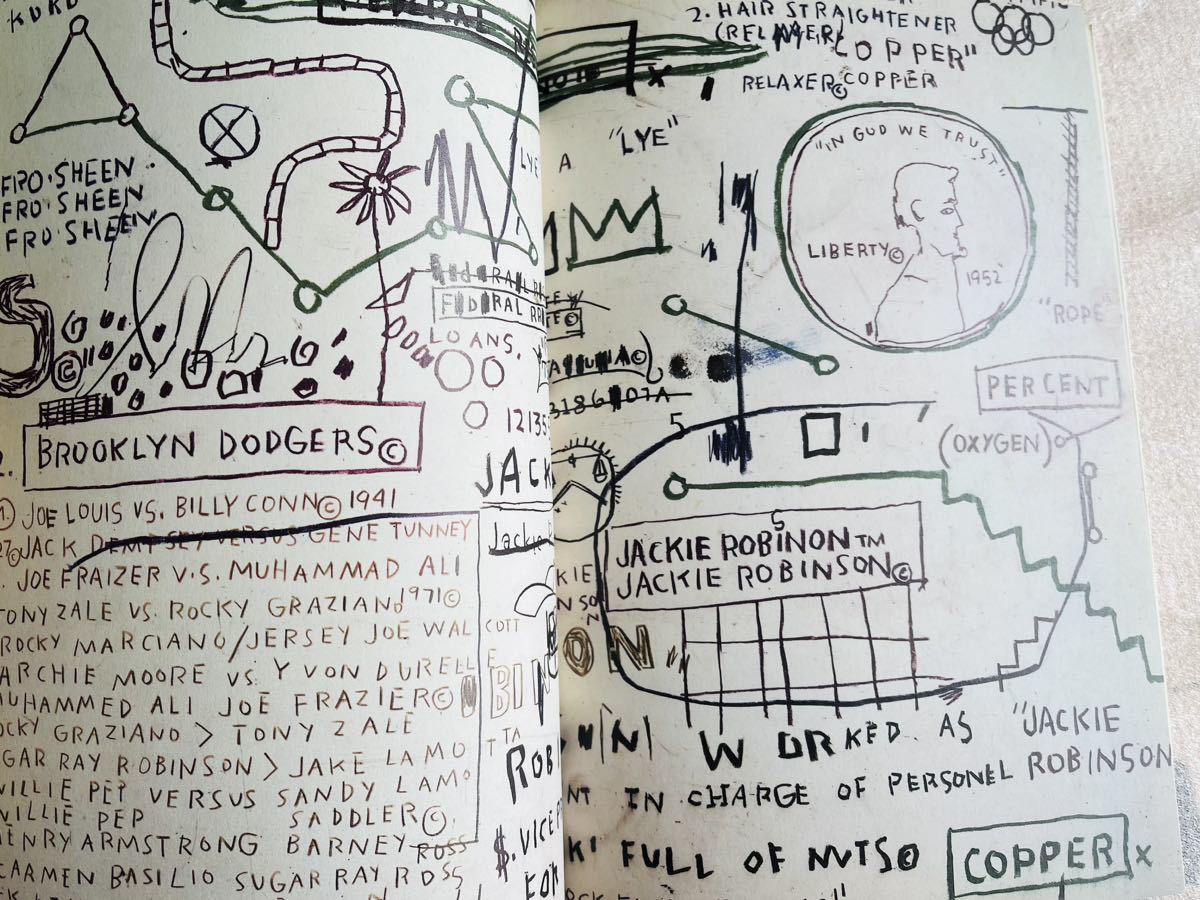 FRO·SHEEN
FRO·SHEEN
FRO·SHEEN
LYE
S©
LOANS.
BROOKLYN DODGERS©
12135
JACK
1. JOE LOUIS VS. BILLY CONN© 1941
JACK DEMPSEY VERSUS GENE TUNNEY
JOE FRAIZER V.S. MUHAMMAD ALI
1971©
TONY ZALE VS. ROCKY GRAZIANO
ROCKY MARCIANO/JERSEY JOE WAL
ARCHIE MOORE VS. YVON DURELLE
MUHAMMED ALI JOE FRAZIER©
OCKY GRAZIANO > TONY ZALE
GAR RAY ROBINSON > JAKE LAMO
WILLIE PEP VERSUS SANDY LAMO
WILLIE PEP SADDLER©
HENRY ARMSTRONG BARNEY ROSS
CARMEN BASILIO SUGAR RAY ROSS
Jackie
COTT
BIN
TTA
ROB
$. VICE P
2. HAIR STRAIGHTENER
(RELAXER) COPPER"
RELAXER© COPPER
A "LYE"
"IN GUD WE TRUST"
LIBERTY©
1952
"ROPE"
PERCENT
(OXYGEN)
5
JACKIE ROBINON™
JACKIE ROBINSON©
KIE
NSON
ON."
WORKED AS "JACKIE
ROBINSON
NT IN CHARGE OF PERSONEL
K' FULL OF NUTS©
COPPER x